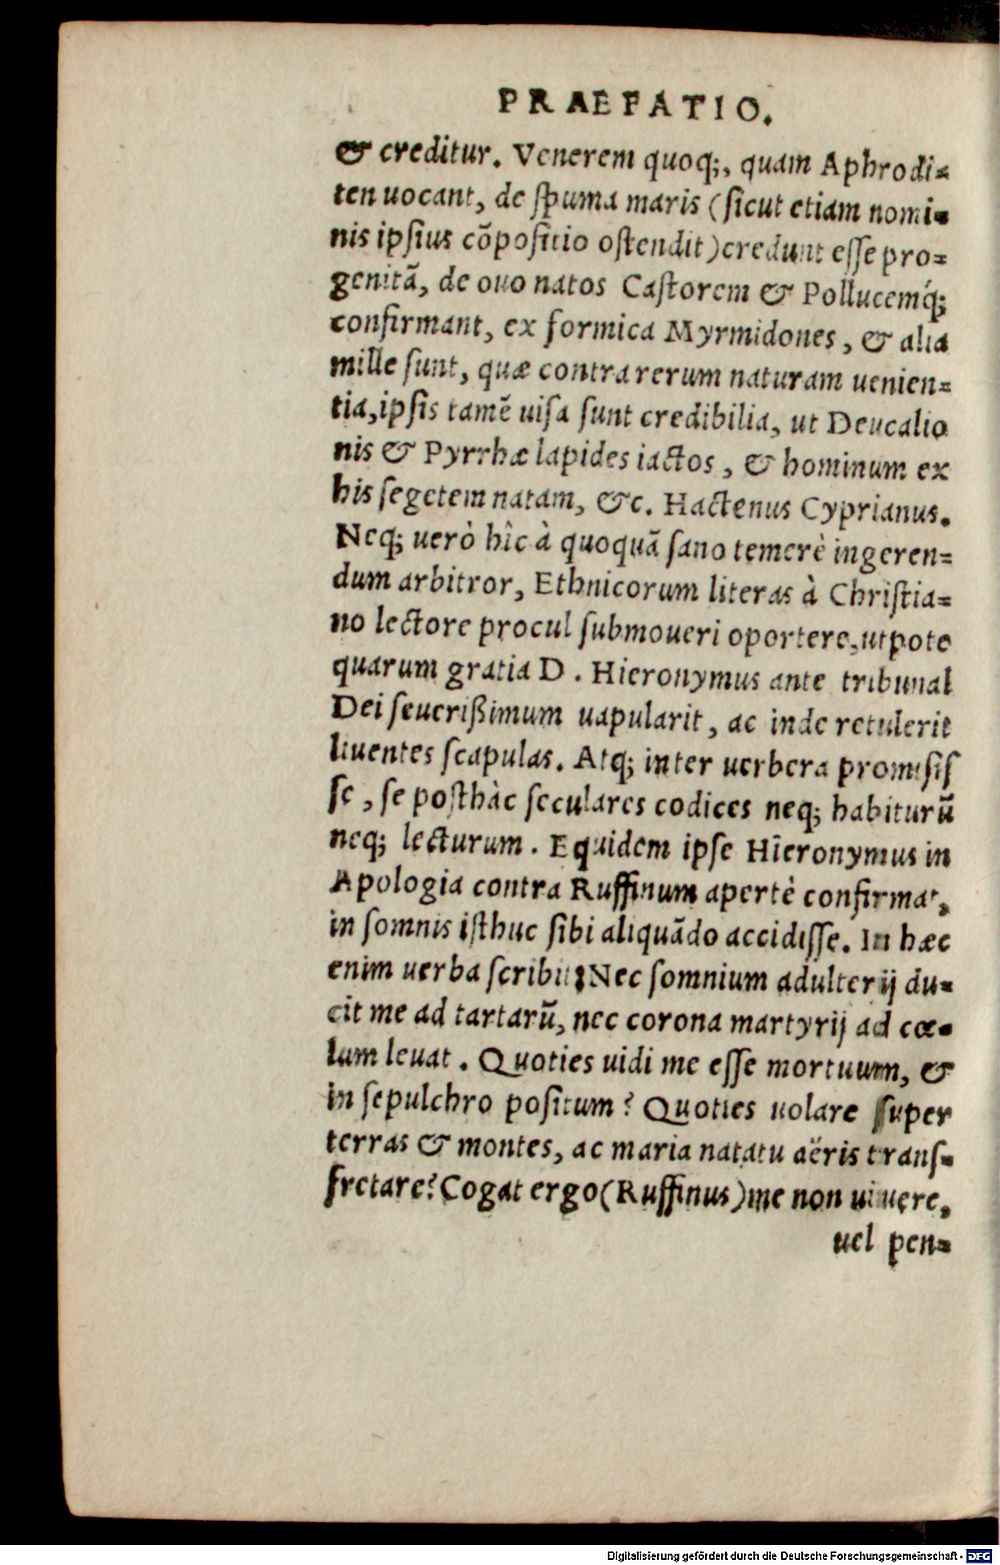 PRAEFATIO.
& creditur. Venerem quoq;, quam Aphrodi-
ten uocant, de ſpuma maris (ſicut etiam nomi-
nis ipſius cõpoſitio oſtendit) credunt eſſe pro-
genitã, de ouo natos Caſtorem & Pollucemq́;
confirmant, ex formica Myrmidones, & alia
mille ſunt, quæ contra rerum naturam uenien-
tia, ipſis tamẽ uiſa ſunt credibilia, ut Deucalio
nis & Pyrrhæ lapides iactos, & hominum ex
his ſegetem natam, &c. Hactenus Cyprianus.
Neq; uerò hîc à quoquã ſano temerè ingeren-
dum arbitror, Ethnicorum literas à Chriſtia-
no lectore procul ſubmoueri oportere, utpote
quarum gratia D. Hieronymus ante tribunal
Dei ſeuerißimum uapularit, ac inde retulerit
liuentes ſcapulas. Atq; inter uerbera promiſiſ
ſe, ſe poſthàc ſeculares codices neq; habiturũ
neq; lecturum. Equidem ipſe Hieronymus in
Apologia contra Ruffinum apertè confirmat,
in ſomnis iſthuc ſibi aliquãdo accidiſſe. In hæc
enim uerba ſcribit: Nec ſomnium adulterij du-
cit me ad tartarũ, nec corona martyrij ad cœ-
lum leuat. Quoties uidi me eſſe mortuum, &
in ſepulchro poſitum? Quoties uolare ſuper
terras & montes, ac maria natatu aëris tranſ-
fretare? Cogat ergo (Ruffinus) me non uiuere,
uel pen-
Digitalisierung gefördert durch die Deutsche Forschungsgemeinschaft - DFG